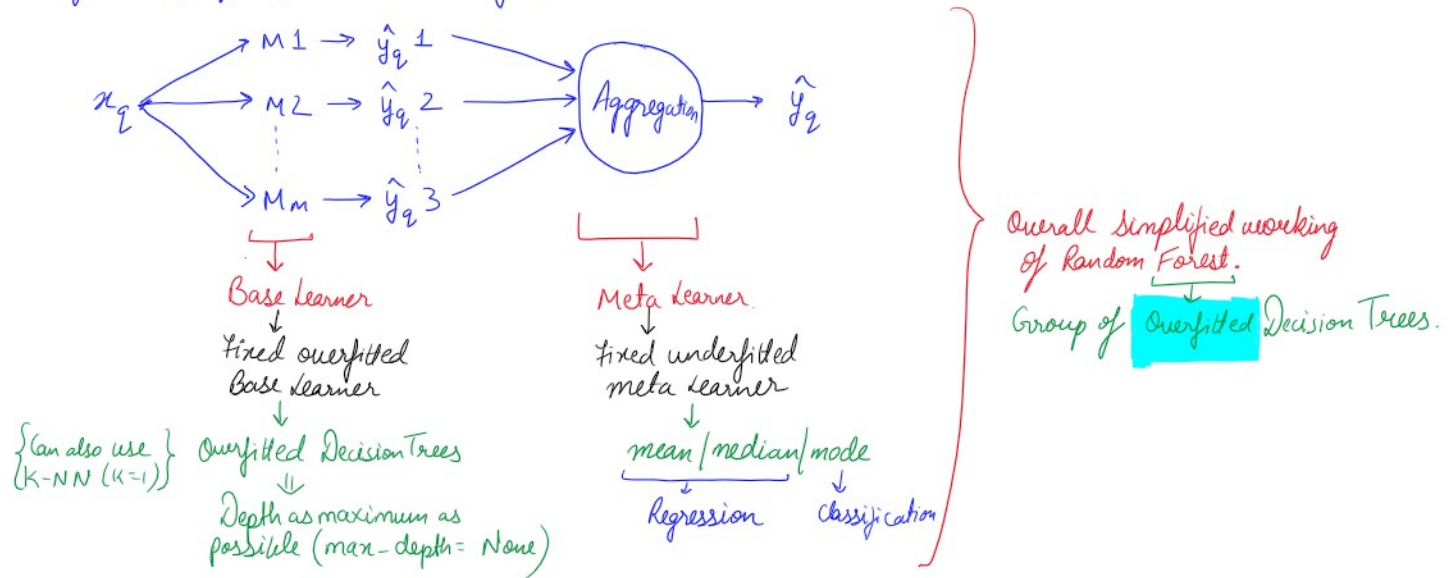 x_q → M1 → ŷ_q 1
M2 → ŷ_q 2
Mm → ŷ_q 3
Aggregation → ŷ_q
Base Learner
Fixed overfitted
Base Learner
{Can also use
K-NN (K=1)}
Overfitted Decision Trees
Depth as maximum as
possible (max-depth = None)
Meta Learner
Fixed underfitted
meta Learner
mean/median/mode
Regression
Classification
Overall simplified working
of Random Forest.
Group of Overfitted Decision Trees.